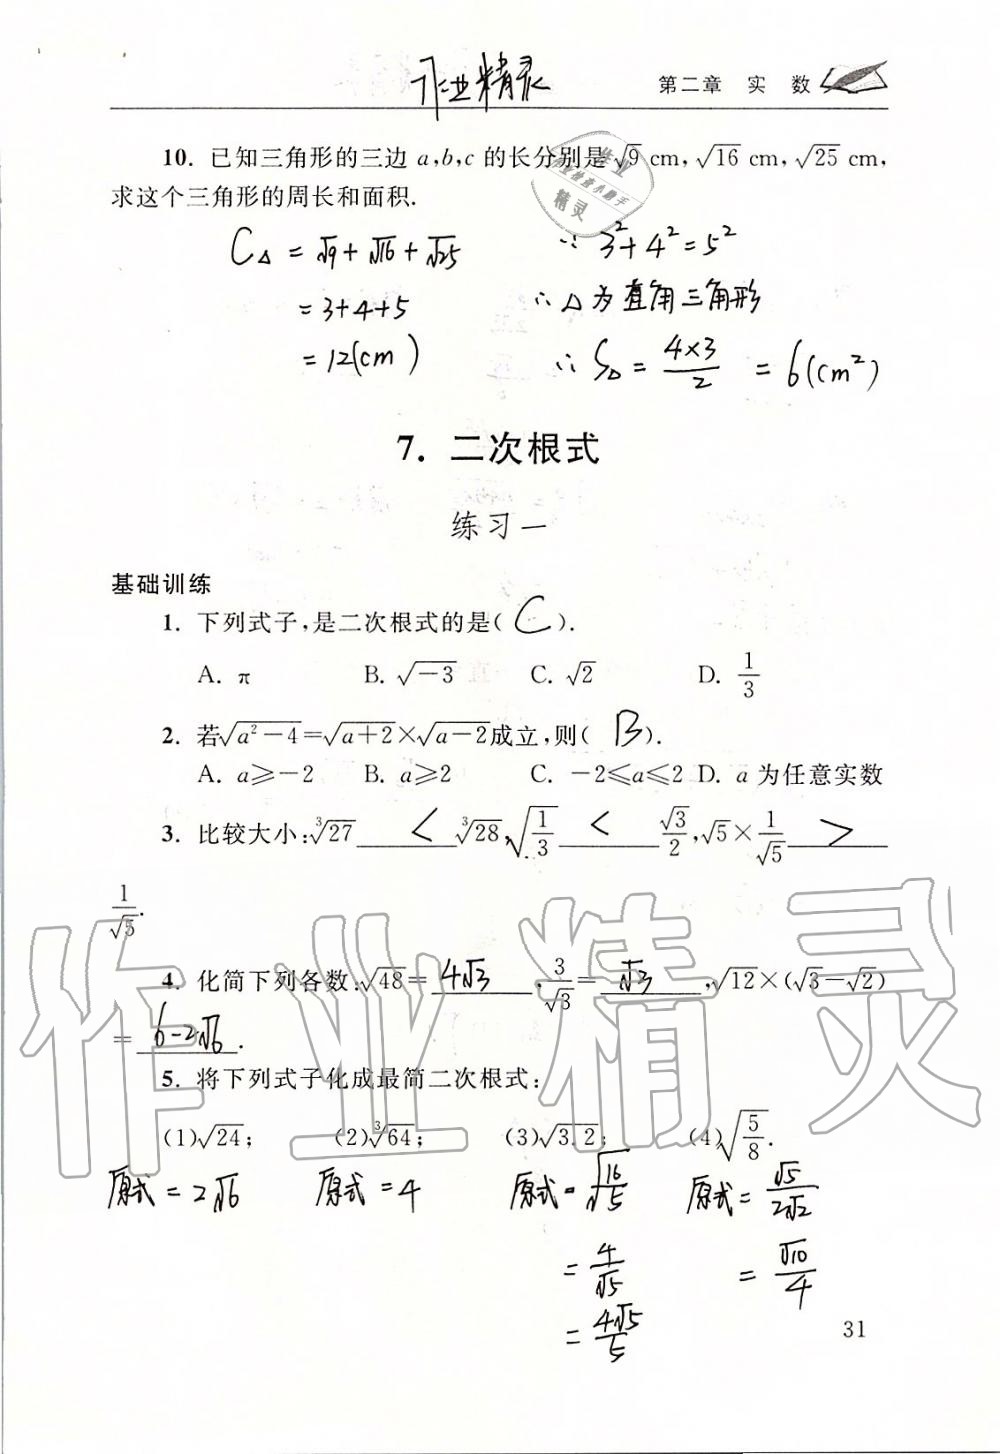 作业精灵
第二章 实 数
10. 已知三角形的三边 a,b,c 的长分别是√9 cm,√16 cm,√25 cm,
求这个三角形的周长和面积.
C△ = √9+√16+√25
=3+4+5
=12(cm)
∵ 3²+4²=5²
∴△为直角三角形
∴ S△ = 4×3/2 = 6(cm²)
7. 二次根式
练习一
基础训练
1. 下列式子,是二次根式的是( C ).
A. π B. √-3 C. √2 D. 1/3
2. 若√a²-4=√a+2×√a-2成立,则( B ).
A. a≥-2 B. a≥2 C. -2≤a≤2 D. a 为任意实数
3. 比较大小:³√27 < ³√28,√1/3 < √3/2,√5×1/√5 >
1/√5.
4. 化简下列各数:√48= 4√3 ,3/√3= √3 ,√12×(√3-√2)
= 6-2√6 .
5. 将下列式子化成最简二次根式:
(1)√24; (2)³√64; (3)√3.2; (4)√5/8.
原式=2√6 原式=4 原式=√16/5 原式=√5/2√2
=4/√5 =√10/4
=4√5/5
31
作业精灵
作业
精灵